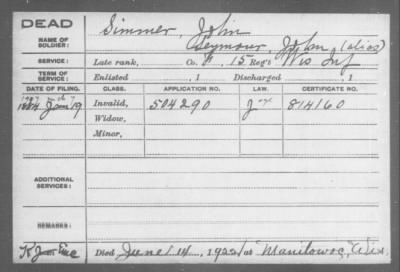 DEAD
NAME OF SOLDIER: Simmer, John
Seymour, John (alias)
SERVICE: Late rank, Co. F, 15 Reg't Wis Inf
TERM OF SERVICE: Enlisted , 1 Discharged , 1
DATE OF FILING. CLASS. APPLICATION NO. LAW. CERTIFICATE NO.
1884 June 19 Invalid, 504290 814160
Widow,
Minor,
ADDITIONAL SERVICES:
REMARKS:
Died June 14, 1922 at Manitowoc, Wis.